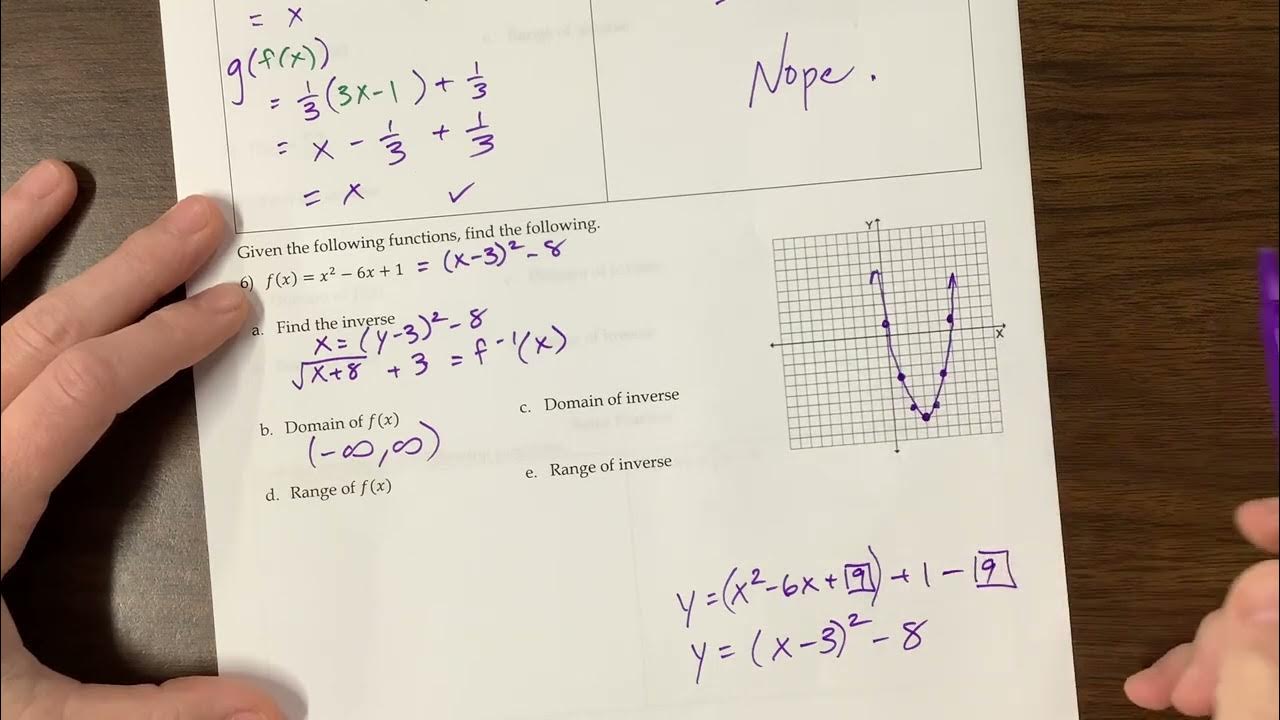 = x
g(f(x))
= 1/3 (3x-1) + 1/3
= x - 1/3 + 1/3
= x ✓
Nope.
Given the following functions, find the following.
6) f(x) = x² − 6x + 1 = (x-3)² - 8
a. Find the inverse
x = (y-3)² - 8
√x+8 + 3 = f⁻¹(x)
b. Domain of f(x)
(-∞, ∞)
c. Domain of inverse
d. Range of f(x)
e. Range of inverse
Y
X
y = (x² - 6x + 9) + 1 - 9
y = (x-3)² - 8